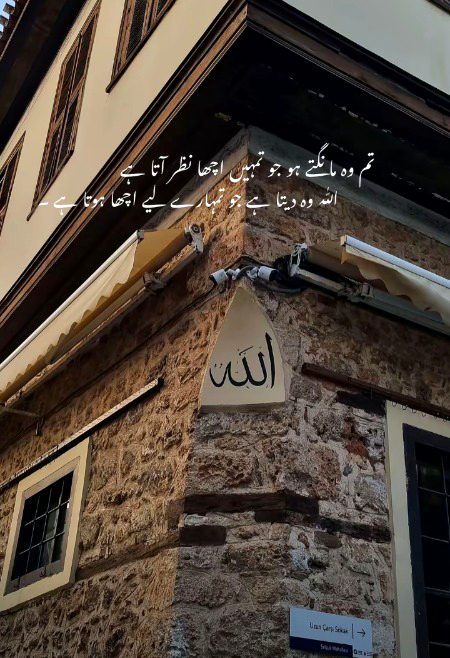 تم وہ مانگتے ہو جو تمہیں اچھا نظر آتا ہے
اللہ وہ دیتا ہے جو تمہارے لیے اچھا ہوتا ہے ۔
الله
Uzun Çarşı Sokak
Selçuk Mahallesi